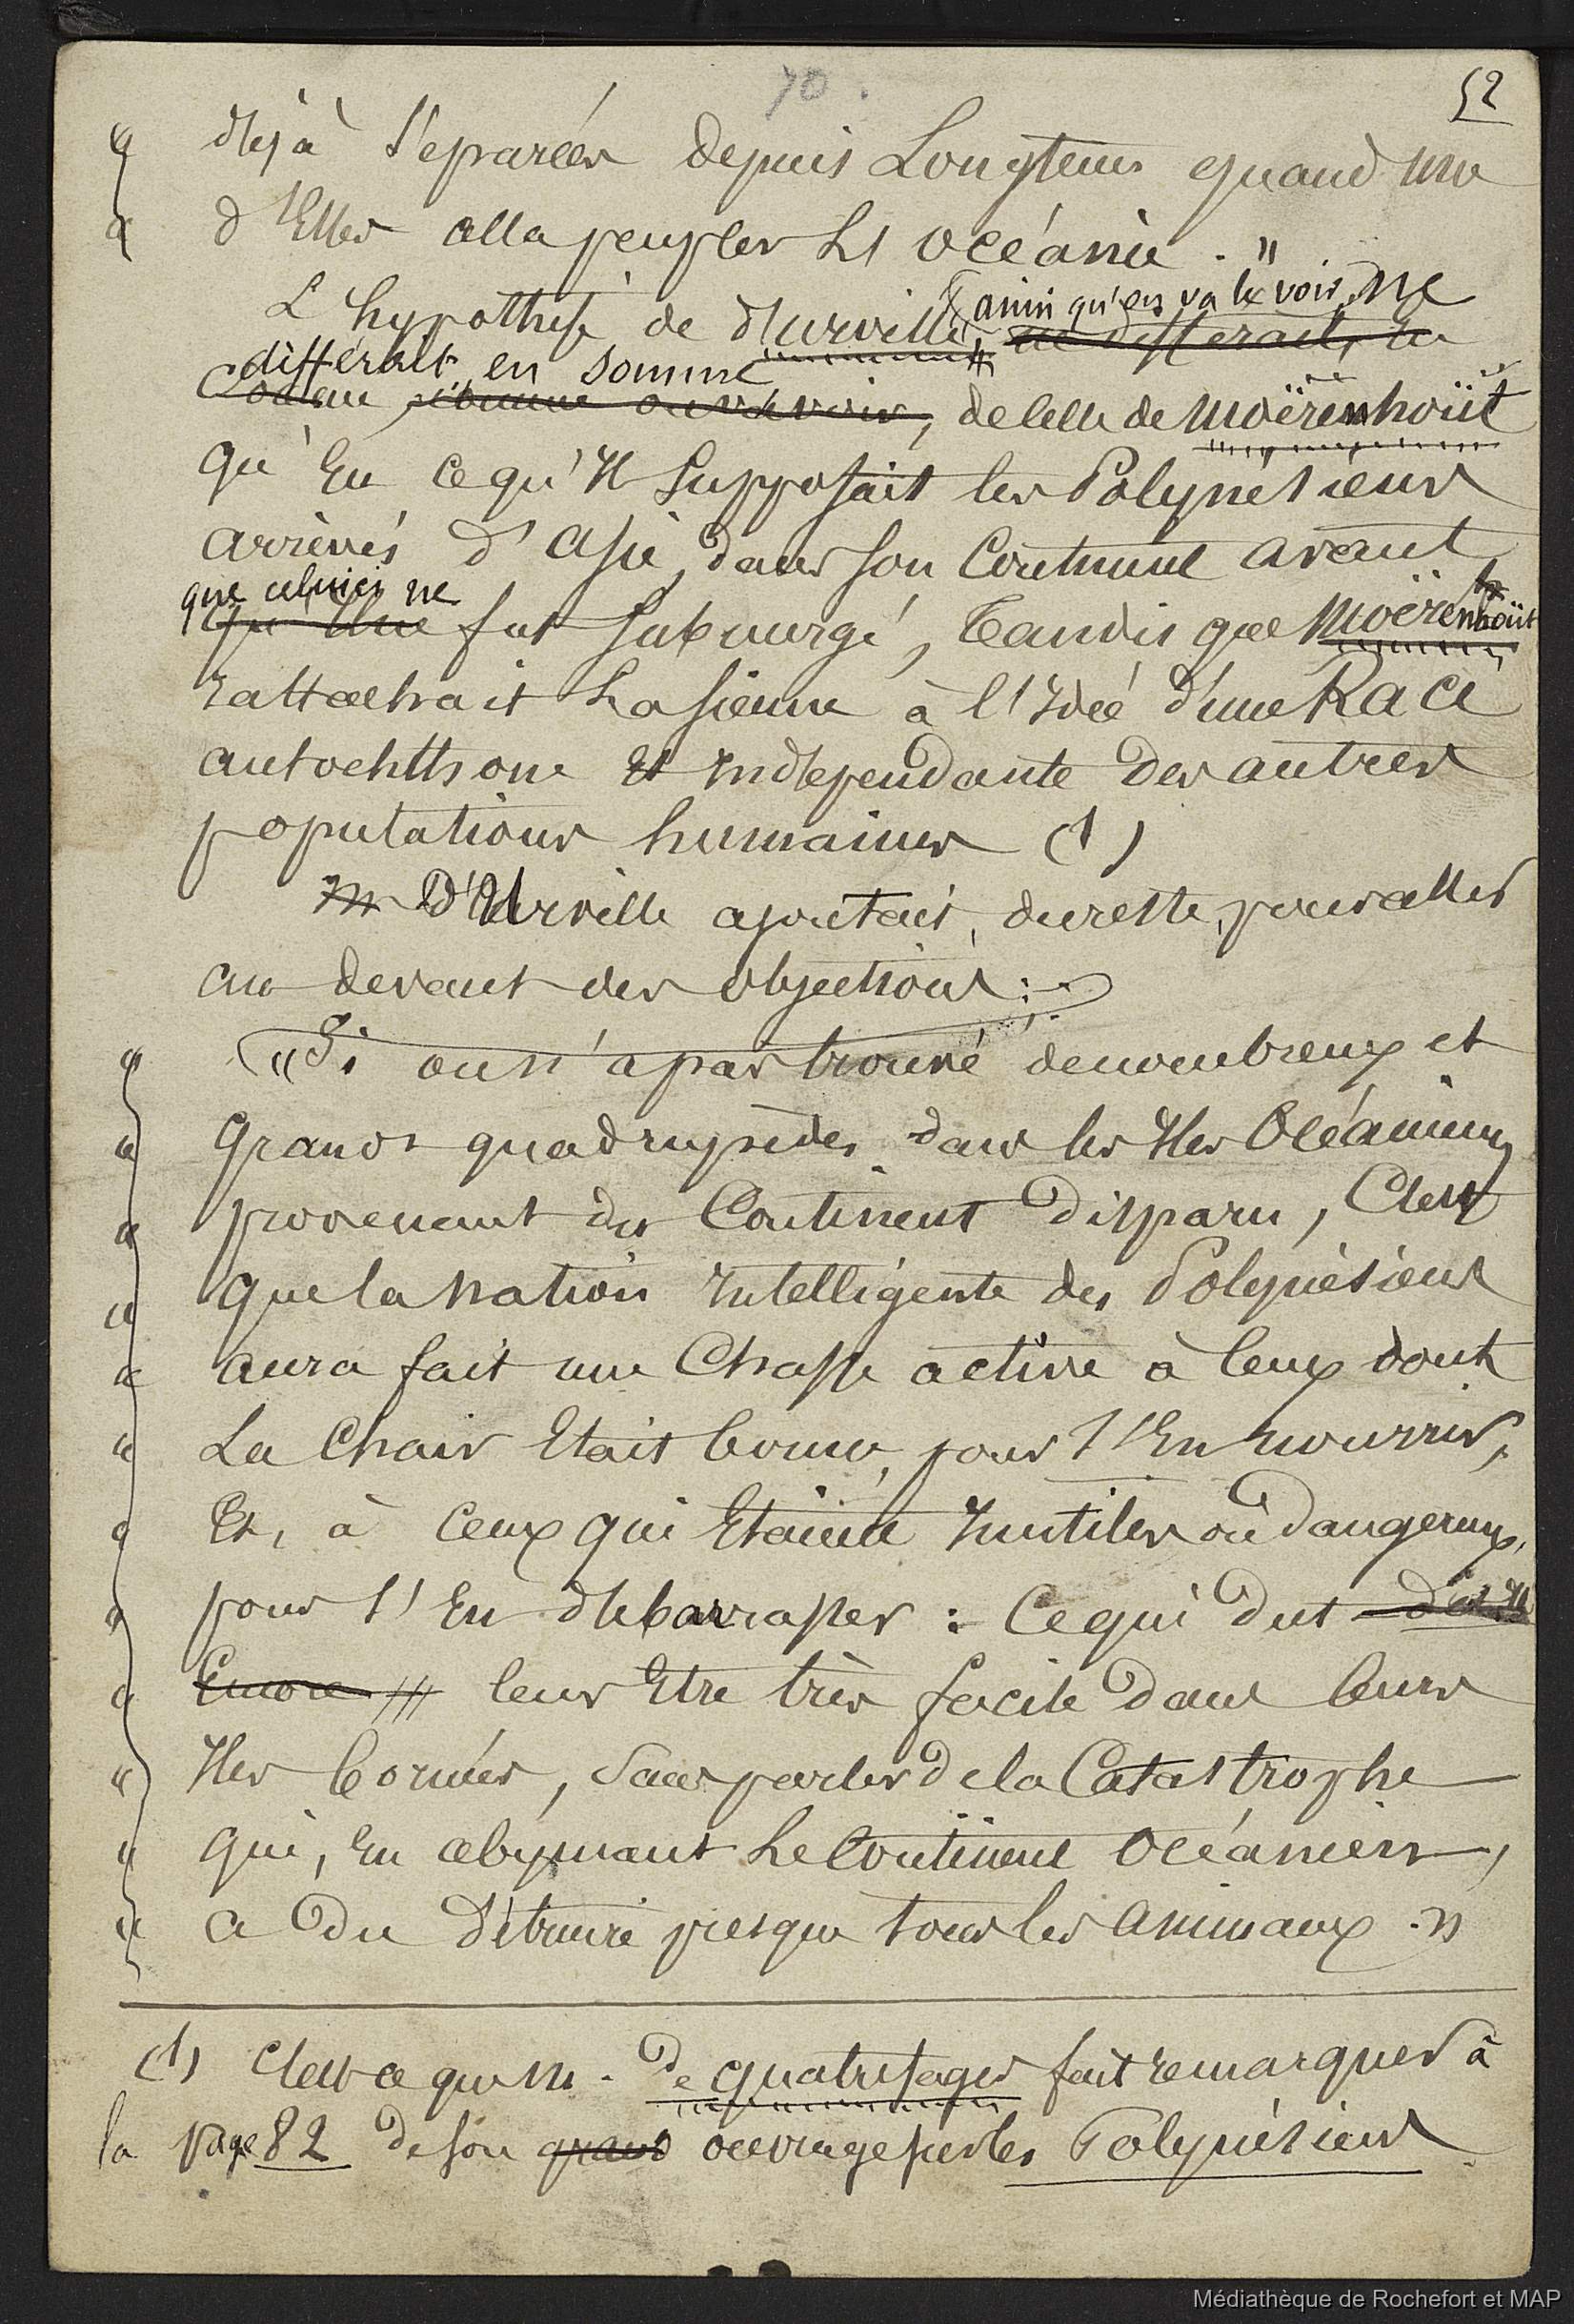 70.
52
« déjà séparées depuis Longtems quand une
« d'Elles alla peupler L'océanie. "
(ainsi qu'on va le voir, ne
L'hypothèse de d'urville ne différait, en
différait en somme
comme on va le voir, de celle de Moërenhoüt
qu'En ce qu'Il Supposait les Polynésiens
arrivés d'Asie, dans son Continent avant
que celui ci ne
qu'Il ne fut submergé, Tandis que Moërenhoüt
rattachait La sienne à l'Idée d'une Race
autochthone Et Indépendante des autres
populations humaines (1)
M D'Urville ajoutait, du reste, pour aller
au devant des objections :
« "Si on n'a pas trouvé de nombreux et
« Grands quadrupèdes dans les Iles Océaniennes
« provenant du Continent Disparu, C'est
« que la nation Intelligente des Polynésiens
« aura fait une Chasse active à ceux dont
« La Chair Etait bonne, pour s'En nourrir,
« Et, à Ceux qui Etaient Inutiles ou Dangereux,
« pour s'En débarrasser : Ce qui Dut dit-Il
« Encore leur Etre très facile Dans leurs
« Iles bornées, Sans parler De la Catastrophe
« qui, En abymant Le Continent Océanien,
« a Du Détruire presque tous les Animaux. "
(1) C'est ce que M. De Quatrefages fait remarquer à
la page 82 de son grand ouvrage sur les Polynésiens
Médiathèque de Rochefort et MAP